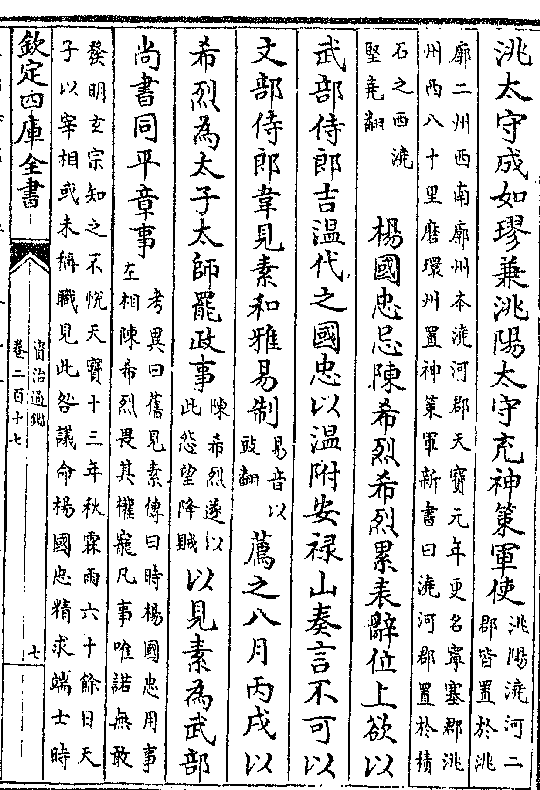 洮太守成如璆兼洮陽太守充神策軍使洮陽澆河二
郡皆置於洮
廓二州西南廓州本澆河郡天寶元年更名寧塞郡洮
州西八十里磨環州置神策軍新書曰澆河郡置於積
石之西澆
堅堯翻
楊國忠忌陳希烈希烈累表辭位上欲以
武部侍郎吉温代之國忠以温附安禄山奏言不可以
文部侍郎韋見素和雅易制易音以
豉翻
薦之八月丙戌以
希烈為太子太師罷政事陳希烈遂以
此怨望降賊
以見素為武部
尚書同平章事考異曰舊見素傳曰時楊國忠用事
左相陳希烈畏其權寵凡事唯諾無敢
發明玄宗知之不悅天寶十三年秋霖雨六十餘日天
子以宰相或未稱職見此咎議命楊國忠精求端士時
欽定四庫全書
資治通鑑
卷二百十七
七